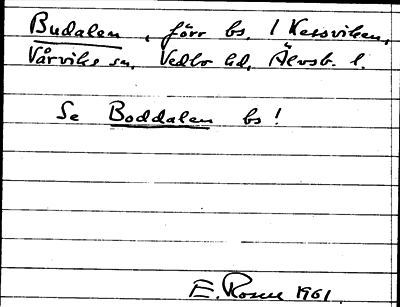 Budalen, förr bs. / Kessviken,
Vårviks sn. Vedbo hd, Älvsb. l.
Se Boddalen bs!
E. Rosell 1961.